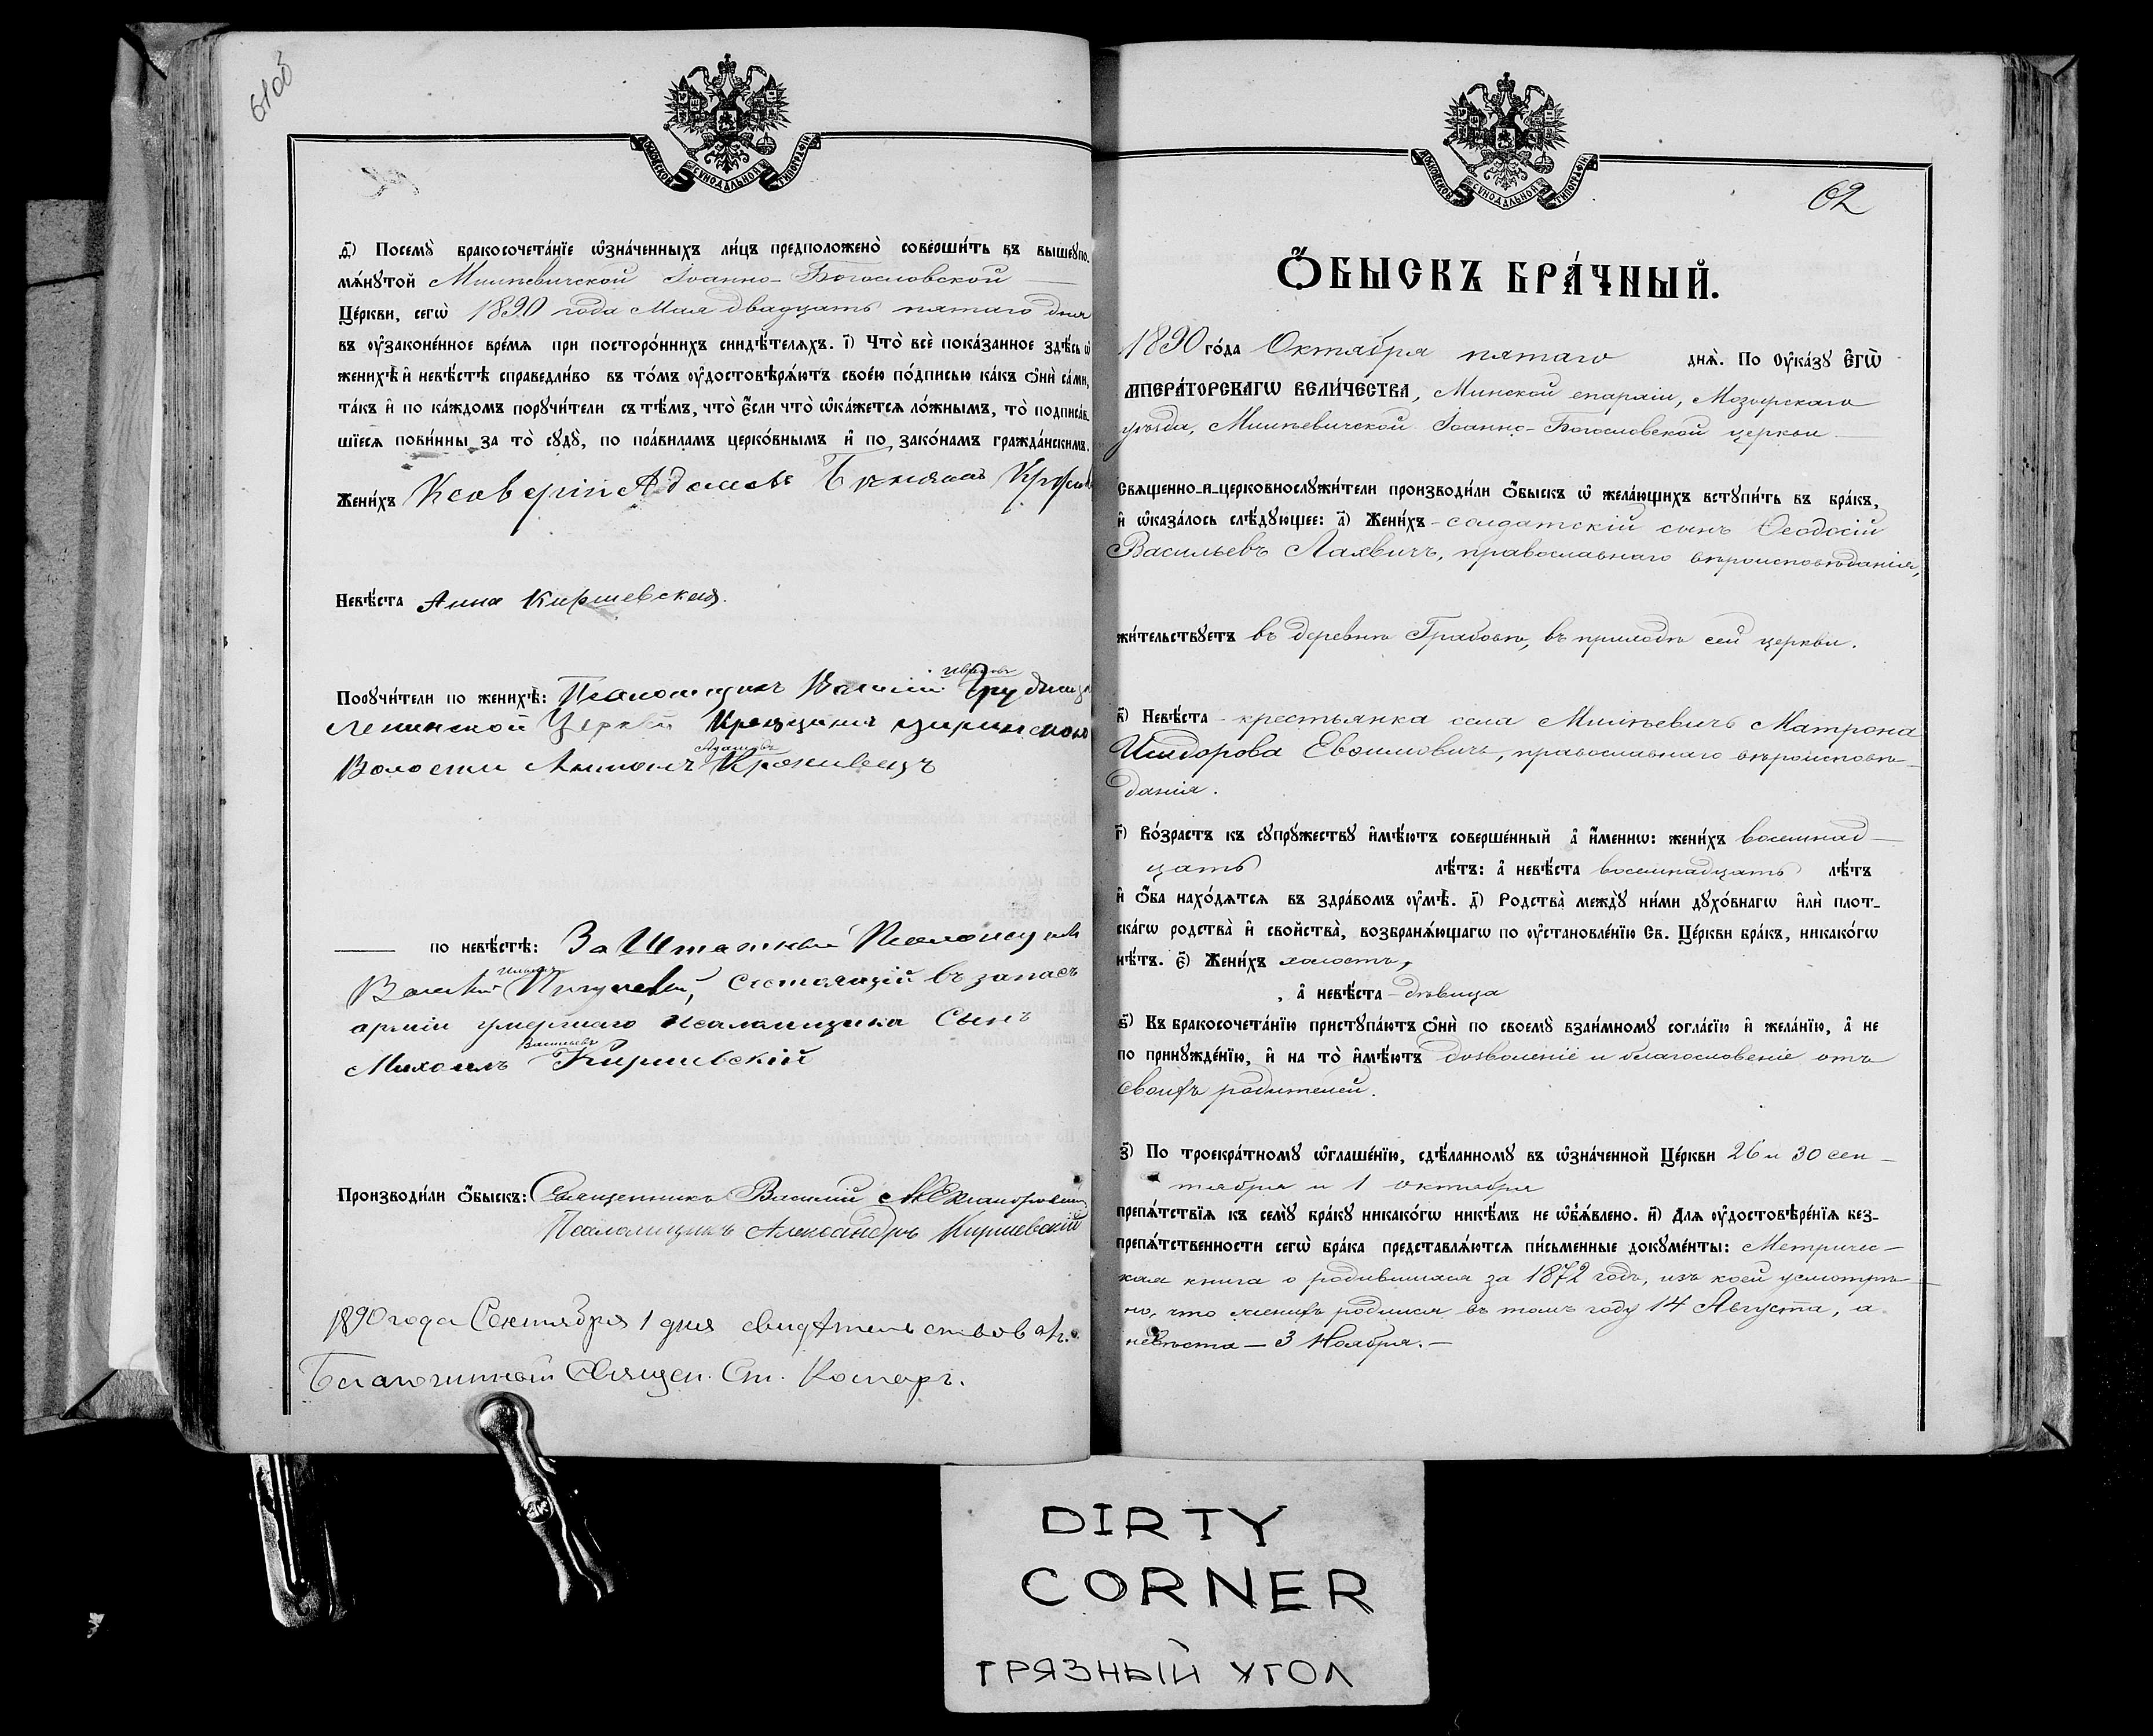 61об
МОСКОВСКОЙ СѴНОДАЛЬНОЙ ТИПОГРАФІИ
д҃) Посемꙋ̀ бракосочета́нїе ѡ҆зна́ченныхъ ли́цъ предположено̀ соверши́ть въ вышеꙋпо-
мѧ́нꙋтой Милѣевичской Іоанно-Богословской —
Це́ркви, сегѡ̀ 1890 года Мая двадцать пятаго дня
въ ᲂу҆законе́нное вре́мѧ при посторо́ннихъ свидѣ́телѧхъ. і҃) Что̀ всѐ пока́занное здѣ́сь ѡ҆
женихѣ̀ и҆ невѣ́стѣ справедли́во въ то́мъ ᲂу҆достовѣрѧ́ютъ свое́ю по́дписью ка́къ ѻ҆нѝ са́ми,
та́къ и҆ по ка́ждомъ порꙋчи́тели съ тѣ́мъ, что̀ є҆́сли что̀ ѡ҆ка́жетсѧ ло́жнымъ, то̀ подписа́в-
шїесѧ пови́нны за то̀ сꙋдꙋ̀, по пра́виламъ церко́внымъ и҆ по зако́намъ гражда́нскимъ.
Жени́хъ Ксаверій Адамовъ
Невѣ́ста Анна Киршевская.
Ивановъ
Порꙋчи́тели по женихѣ̀: Псаломщикъ
Ленинской Церкви
Адамовъ
Волости
по невѣ́стѣ: Заштатный Псаломщикъ
состоящій въ запасѣ
арміи умершаго псаломщика сынъ
Васильевъ
Михаилъ Киршевскій
Производи́ли ѻ҆́быскъ: Священникъ Василій
Псаломщикъ Александръ Киршевскій
1890 года Сентября 1 дня свидѣтельствовалъ.
Благочинный Священ. Ст. Комаръ.
МОСКОВСКОЙ СѴНОДАЛЬНОЙ ТИПОГРАФІИ
62
Ѻ҆́БЫСКЪ БРА́ЧНЫЙ.
1890 го́да Октября пятаго днѧ̀. По ᲂу҆ка́зꙋ є҆гѡ̀
и҆мпера́торскагѡ вели́чества, Минской епархіи, Мозырскаго
уѣзда, Милѣевичской Іоанно-Богословской церкви —
Свѧщенно-и-церковнослꙋжи́тели производи́ли ѻ҆́быскъ ѡ҆ жела́ющихъ встꙋпи́ть въ бра́къ,
и҆ ѡ҆каза́лось слѣ́дꙋющее: а҃) Жени́хъ - солдатскій сынъ Ѳеодосій
Васильевъ Лахвичъ, православнаго вѣроисповѣданія,
жи́тельствꙋетъ въ деревнѣ Грабовѣ, въ приходѣ сей церкви.
в҃) Невѣ́ста - крестьянка села Милѣевичъ Матрона
Исидорова Евсимовичъ, православнаго вѣроисповѣ-
данія.
г҃) Во́зрастъ къ сꙋпрꙋ́жествꙋ и҆мѣ́ютъ соверше́нный а҆ и҆́менно: жени́хъ восемнад-
цать лѣ́тъ: а҆ невѣ́ста восемнадцать лѣ́тъ
и҆ ѻ҆́ба нахо́дѧтсѧ въ здра́вомъ ᲂу҆мѣ̀. д҃) Родства̀ междꙋ̀ ни́ми дꙋхо́внагѡ и҆лѝ плот-
ска́гѡ родства̀ и҆ свойства̀, возбранѧ́ющагѡ по ᲂу҆становле́нїю Св. Це́ркви бра́къ, никако́гѡ
нѣ́тъ. є҃) Жени́хъ холостъ,
, а҆ невѣ́ста - дѣвица
ѕ҃) Къ бракосочета́нїю пристꙋпа́ютъ ѻ҆нѝ по своемꙋ̀ взаи́мномꙋ согла́сїю и҆ жела́нїю, а҆ не
по принꙋжде́нїю, и҆ на то̀ и҆мѣ́ютъ дозволеніе и благословеніе отъ
своихъ родителей.
з҃) По троекра́тномꙋ ѡ҆глаше́нїю, сдѣ́ланномꙋ въ ѡ҆зна́ченной Це́ркви 26 и 30 сен-
тября и 1 октября
препѧ́тствїѧ къ семꙋ̀ бра́кꙋ никако́гѡ никѣ́мъ не ѡ҆б̾ѧ́влено. и҃) Длѧ ᲂу҆достовѣре́нїѧ без-
препѧ́тственности сегѡ̀ бра́ка представлѧ́ютсѧ пи́сьменные докꙋме́нты: Метричес-
кая книга о родившихся за 1872 годъ, изъ коей усмотрѣ-
но, что женихъ родился въ томъ году 14 Августа, а
невѣста — 3 Ноября. —
DIRTY
CORNER
ГРЯЗНЫЙ УГОЛ